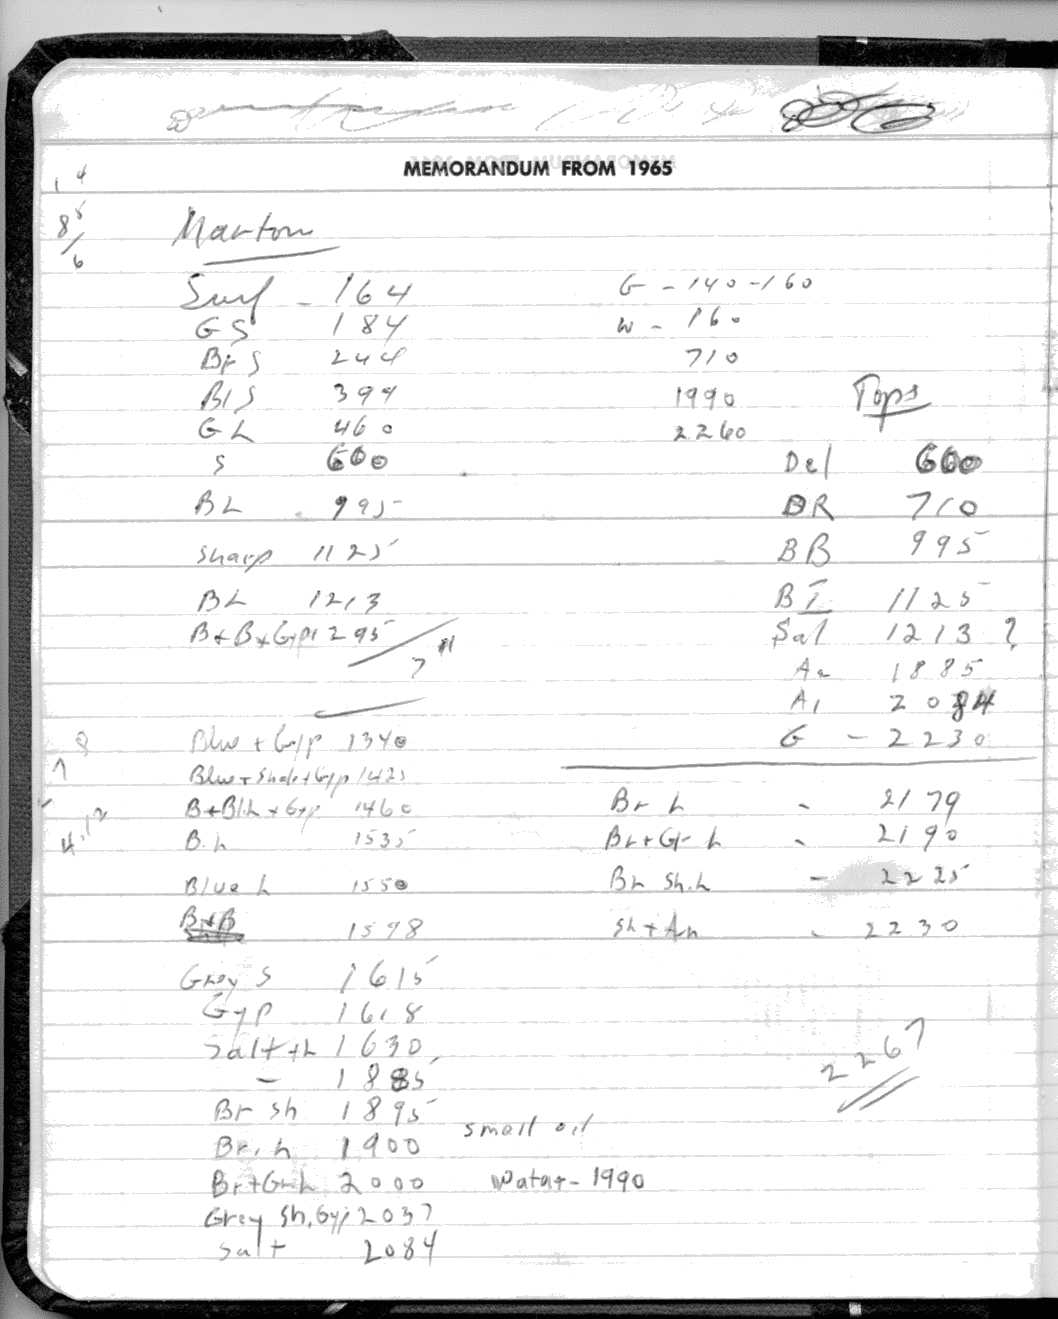 MEMORANDUM FROM 1965
1 4
8
/6
Martom
Surf - 164
G S 184
Br S 244
Bl S 399
G L 460
S 600
B L 995
sharp 1125
B L 1213
B+B+Gyp 1295
7"
Blue + Gyp 1340
Blue + Shale + Gyp 1425
B+Bl.L + Gyp 1460
B. L 1535
Blue L 1550
B+B 1598
Grey S 1615
Gyp 1618
Salt + L 1630
- 1885
Br sh 1895
Br. L 1900 smell oil
Br+Gr L 2000 Watar - 1990
Grey Sh, Gyp 2037
Salt 2084
8
7
4.12
G - 140 - 160
W - 160
710
1990
2260
Tops
Del 600
DR 710
BB 995
BI 1125
Sal 1213 ?
A2 1885
A1 2084
G - 2230
Br L - 2179
Br+Gr L - 2190
Br Sh. L - 2225
Sh + An - 2230
2267